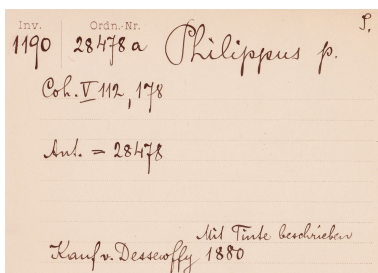 Inv. Ordn.-Nr. S.
1190 28478a Philippus p.
Coh. V 112, 178
Ant. = 28478
Mit Tinte beschrieben
Kauf v. Dessewffy 1880